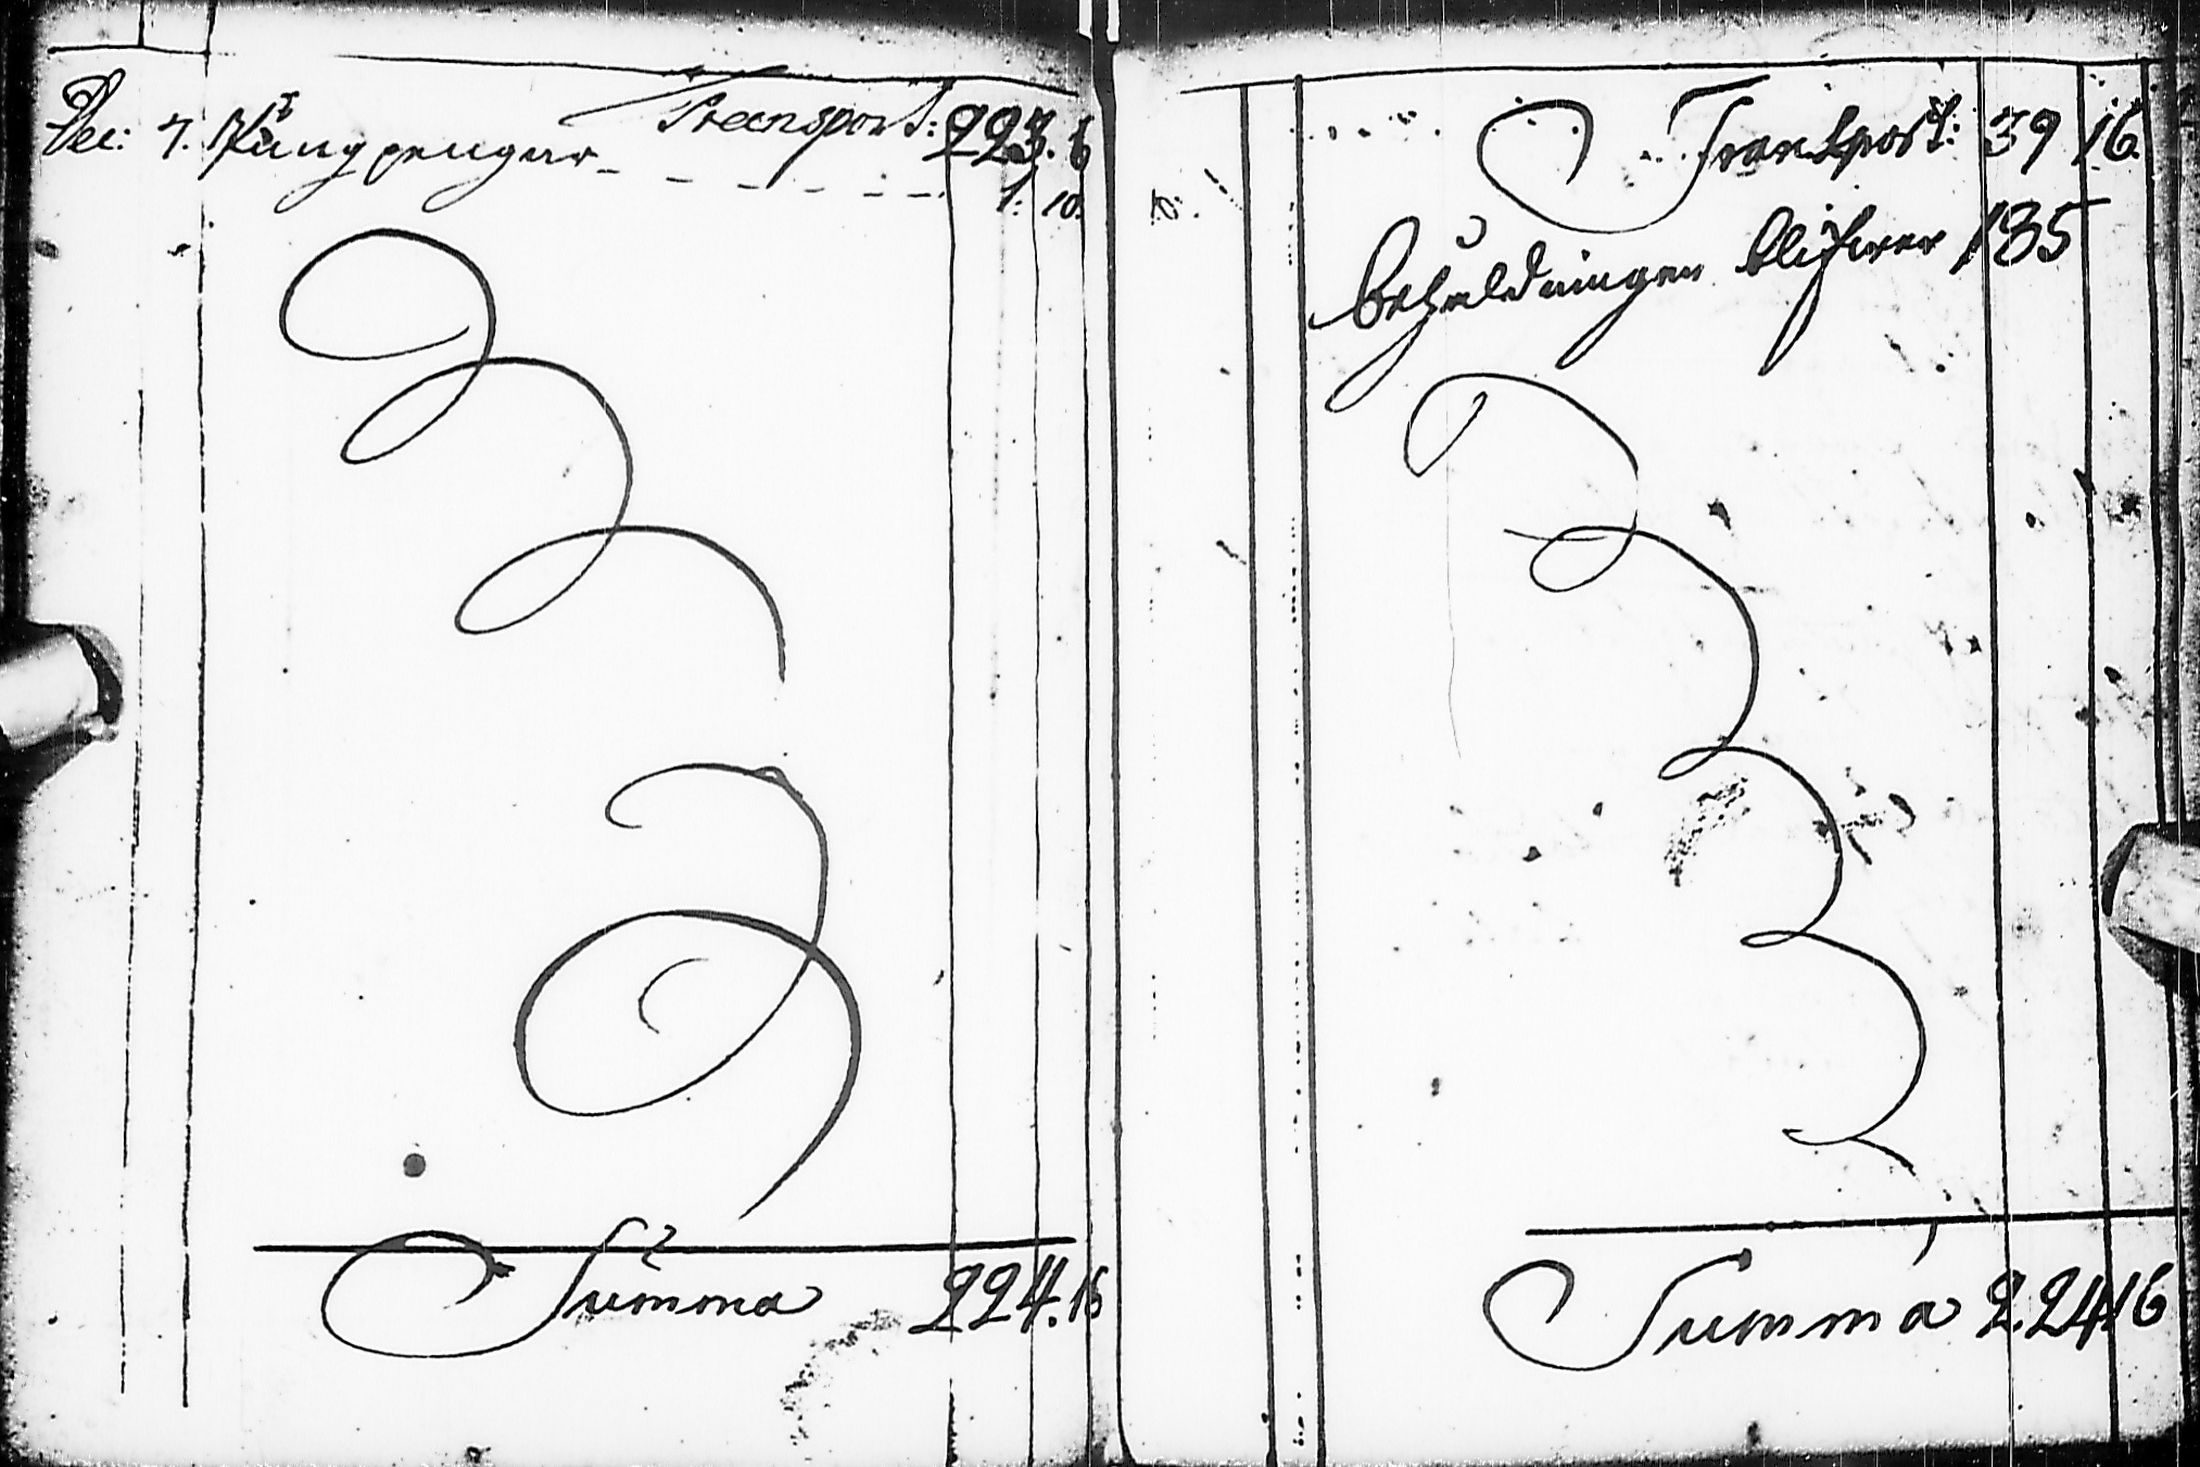 Transport: 223. 6
Dec: 7. Pungpengar 1: 10.
Summa 224. 16
Transport: 39 16.
Behåldningen blifwer 185
Summa 224 16